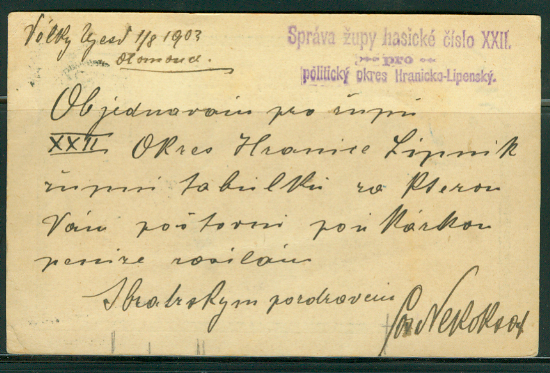 Velký Újezd 1/8 1903
Olomouc.
Správa župy hasické číslo XXII.
pro
politický okres Hranicko-Lipenský.
Objednavam pro župu
XXII Okres Hranice Lipnik
župni tabulku za kterou
Vám poštovni poukázkou
penize zasilám
S bratrskym pozdravem